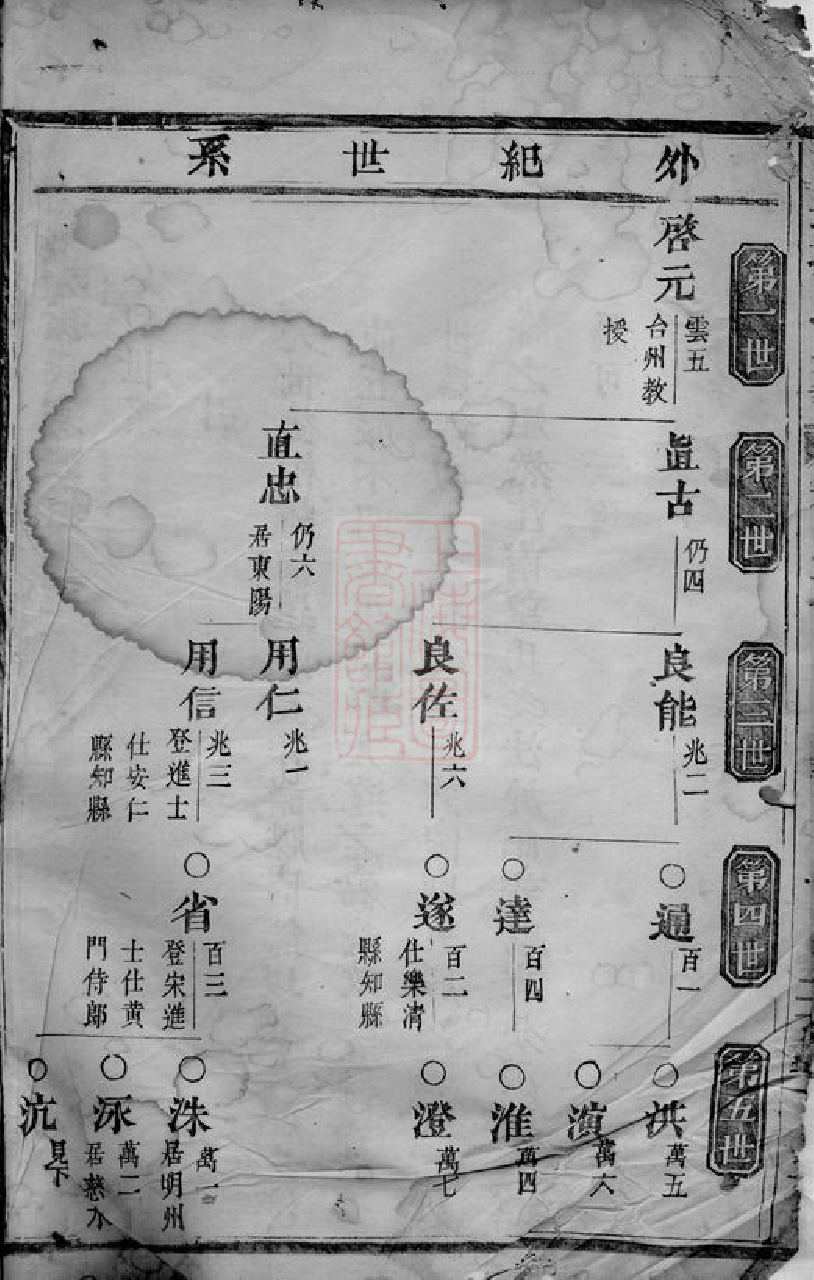 外紀世系
第一世
啓元
雲五
台州教
授
第二世
直古
仍四
直忠
仍六
居東陽
第三世
良能
兆二
良佐
兆六
用仁
兆一
用信
兆三
登進士
仕安仁
縣知縣
第四世
○通
百一
○達
百四
○遂
百二
仕樂清
縣知縣
○省
百三
登宋進
士仕黄
門侍郎
第五世
○洪
萬五
○演
萬六
○淮
萬四
○澄
萬七
○洙
萬一
居明州
○泳
萬二
居慈水
○沆
見下
上海圖書館藏